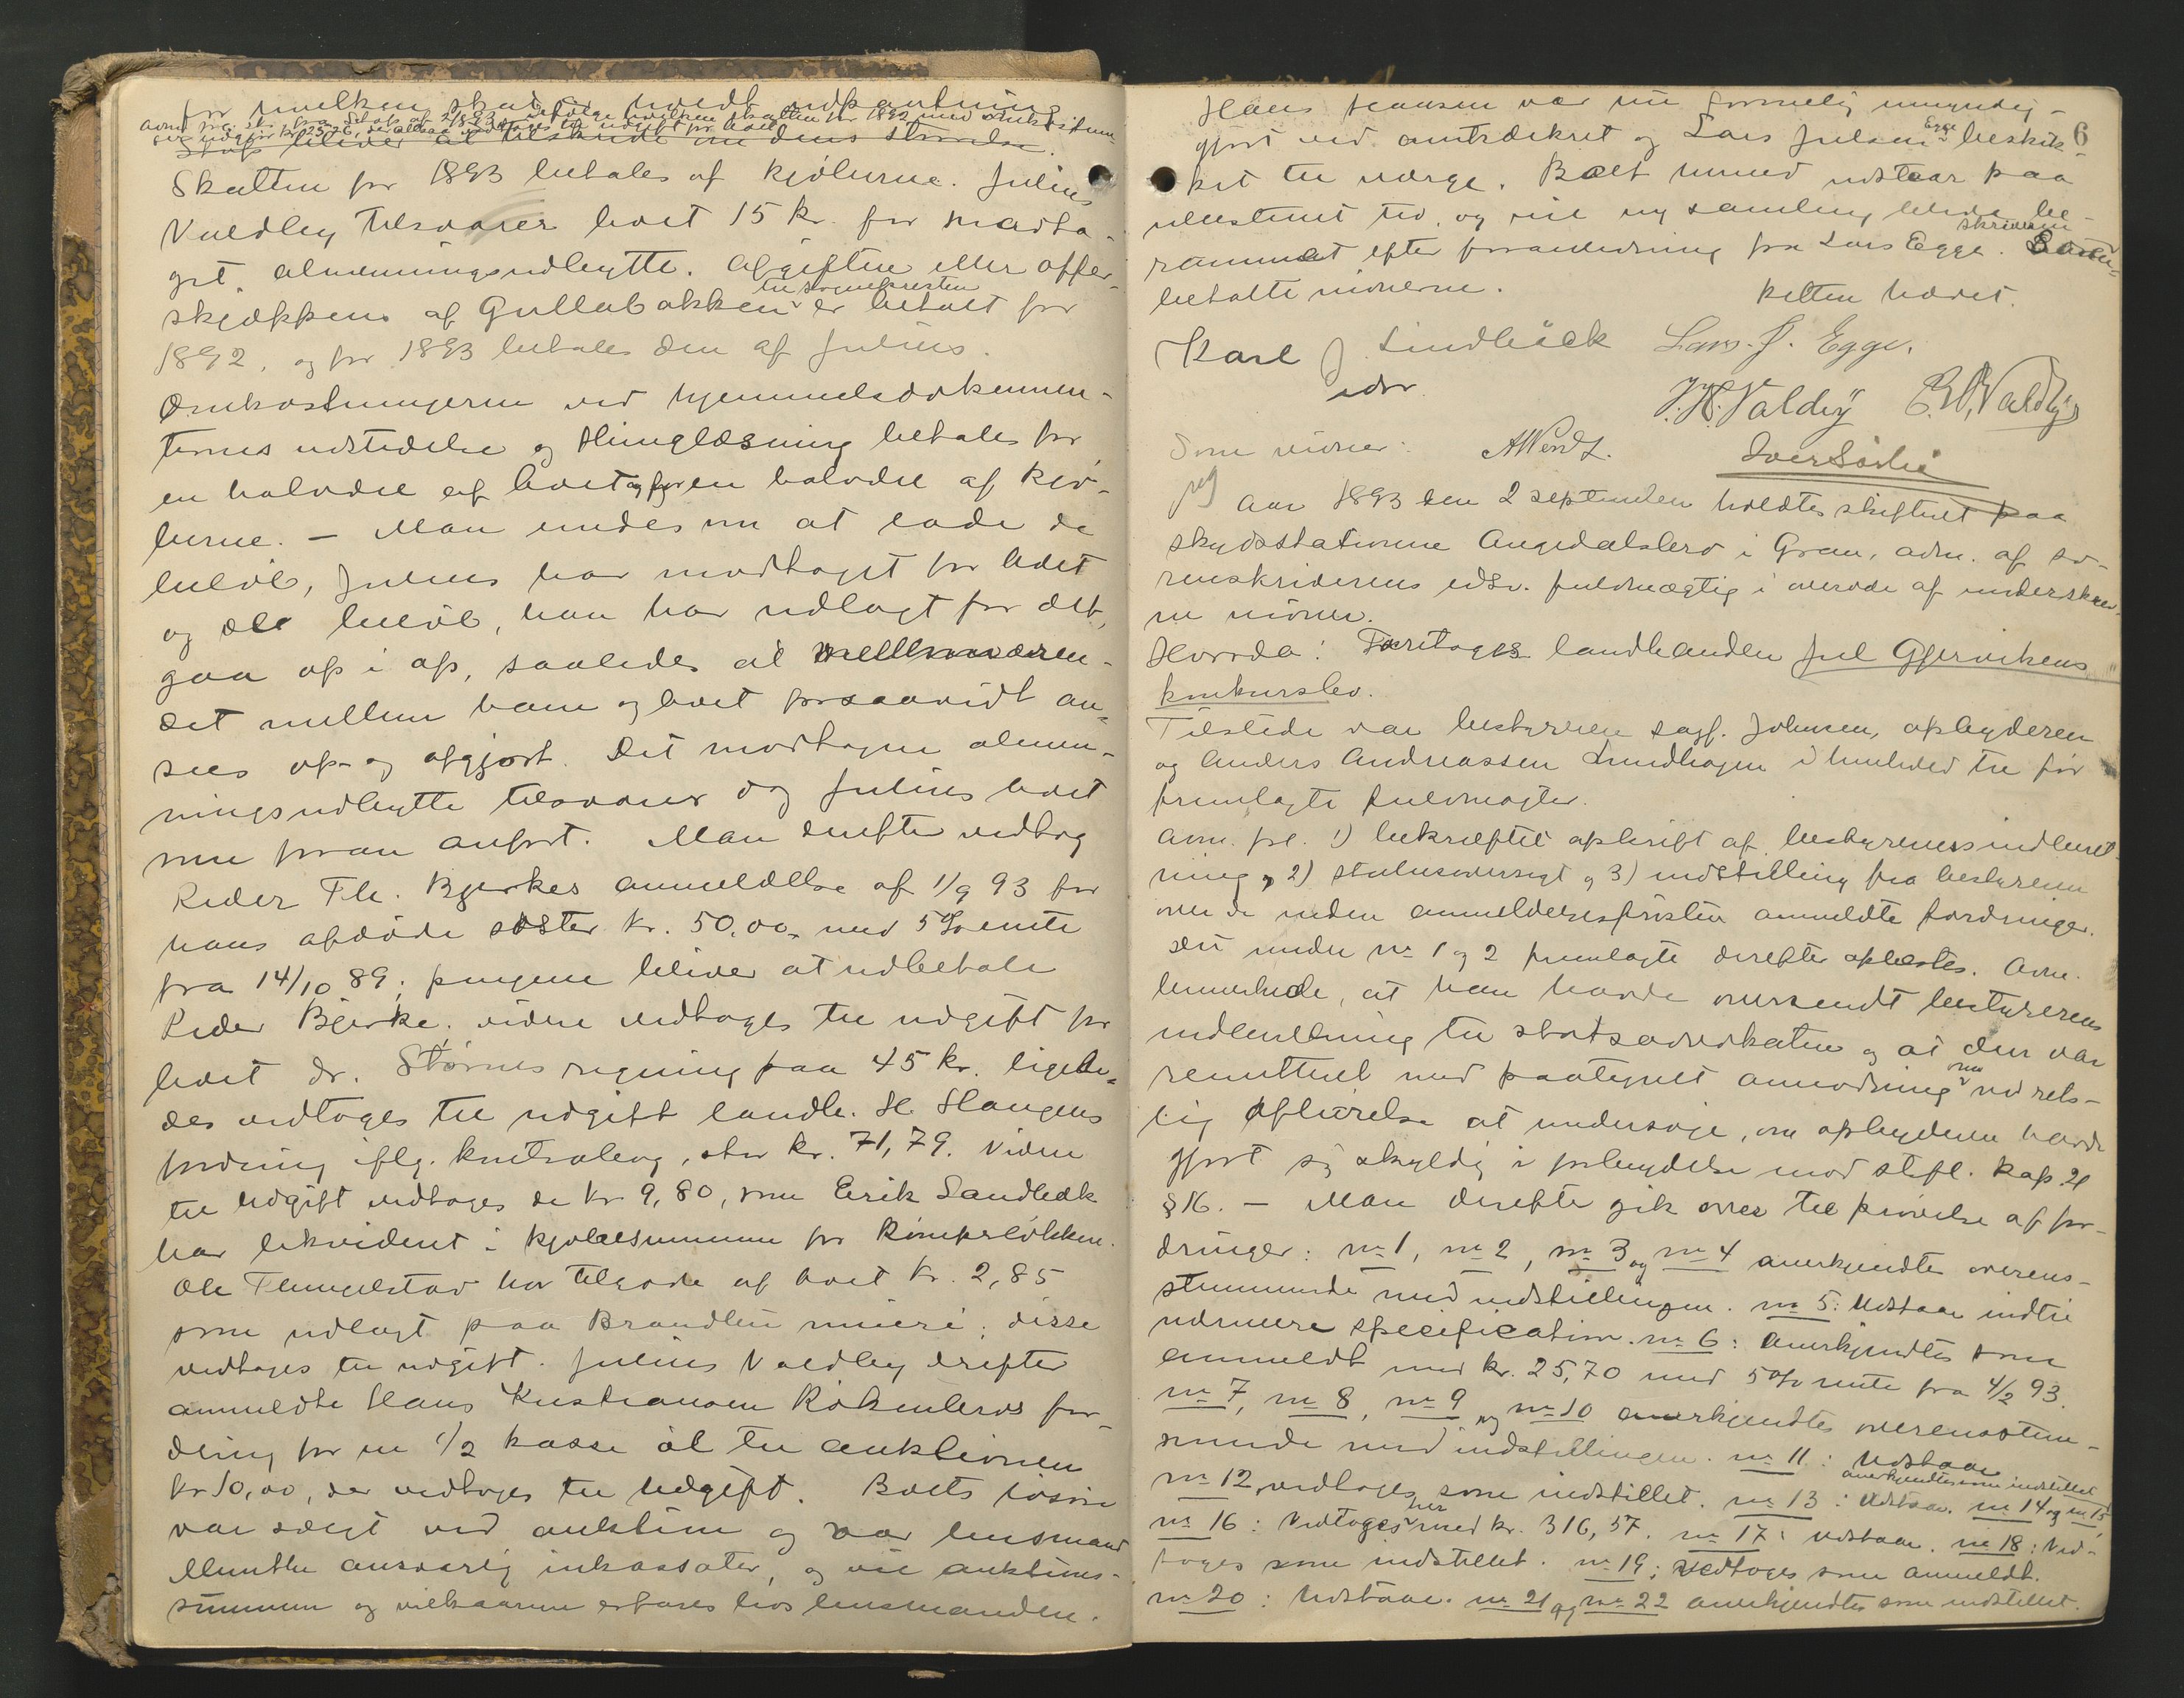 for hvilken skat er holdt udpantning
adm. fra. sk. fra. Selap af 2/8 1893 ifølge hvilken skatten for 1892 med omkostnin-
ger udgjør kr. 25,26, der altsaa vedtoges til udgift for boet
Skatten for 1893 betales af kjøberne. Julius
Valdley tilsvarer boet 15 kr. for modta-
get almenningsudbytte. Afgiften eller offer-
skjæppens af Gullabakken til sognepresten er betalt for
1892, og for 1893 betales den af Julius.
Omkostningerne ved hjemmelsdokumen-
ternes udstedelse og thinglæsning betales for
en halvdel af boet og for en halvdel af kjø-
berne. — Man enedes om at lade de
beløb, Julius har modtaget for boet
og de beløb, han har udlagt for det,
gaa op i op, saaledes at mellemværen-
det mellem ham og boet forsaavidt an-
sees op- og afgjort. Det modtagne almen-
ningsudbytte tilsvarer dog Julius boet
som foran anført. Man derefter vedtog
Peder Fle. Bjerkes anmeldelse af 1/9 93 for
hans afdøde søster kr. 50,00 med 5% rente
fra 14/10 89; pengene bliver at udbetale
Peder Bjerke. videre vedtoges til udgift for
boet dr. Størnes regning paa 45 kr. ligele-
des vedtoges til udgift landh. H. Haugens
fordring iflg. kontrabog, stor kr. 71,79. Videre
til udgift vedtoges de kr. 9,80, som Erik Sandbæk
har likvideret i kjøbesummen for
Ole har tilgode af boet kr. 2,85
som udlagt paa Brandbu meieri; disse
vedtoges til udgift. Julius Valdley derefter
anmeldte Hans Kristiansen for-
dring for en 1/2 kasse øl til auktionen
kr 10,00, der vedtoges til udgift. Boets løsøre
var solgt ved auktion og var lensmand
Munthe ansvarlig inkassator, og vil auktions-
summen og vilkaarene erfares hos lensmanden.
Hans Hansen var nu formelig umyndig-
gjort ved amtsdekret og Lars Julsen Egge beskik- 6
ket til verge. Boet herved udstaar paa
ubestemt tid, og vil ny samling blive be-
rammet efter foranledning fra Lars Egge.
betalte vidnerne. Retten hævet.
Karl J. Lindbäck Lars. J. Egge.
edsv. J. H. Valdley E. H. Valdley
Som vidner: AWendt. Iver Sørlie
Aar 1893 den 2 september holdtes skifteret paa
skydsstationen Augedalsbro i Gran, adm. af so-
renskriverens edsv. fuldmægtig i overvær af underskrev-
ne vidner.
Hvorda: Foretoges landhandler Juel Gjervikens
konkursbo.
Tilstede var bestyreren sagf. Johnsen, opbyderen
og Anders Andreassen Lundhagen i henhold til før
fremlagte fuldmagter.
Adm. frl. 1) bekræftet afskrift af bestyrerens indberet-
ning, 2) statusoversigt og 3) indstilling fra bestyreren
over de inden anmeldelsesfristen anmeldte fordringer.
Det under no 1 og 2 fremlagte derefter oplæstes. Adm.
bemerkede, at han havde oversendt bestyrerens
indberetning til statsadvokaten og at den var
remitteret med paategnet anmodning om ved rets-
lig afhørelse at undersøge, om opbyderen havde
gjort sig skyldig i forbrydelse mod strfl. kap. 21
§ 16. — Man derefter gik over til prøvelse af for-
dringer: no 1, no 2, no 3 og no 4 anerkjendtes overens-
stemmende med indstillingen. no 5: Udstaar indtil
nærmere specifikation. no 6: Anerkjendtes som
anmeldt med kr. 25,70 med 5% rente fra 4/2 93.
no 7, no 8, no 9 og no 10 anerkjendtes overensstem-
mende med indstillingen. no 11: Udstaar
no 12 vedtoges som indstillet. no 13: Udstaar. no 14 og no 15 anerkjendtes som indstillet
no 16: Vedtoges her med kr. 316,57. no 17: Udstaar. no 18: Ved-
toges som indstillet. no 19: Vedtoges som anmeldt.
no 20: Udstaar. no 21 og no 22 anerkjendtes som indstillet.